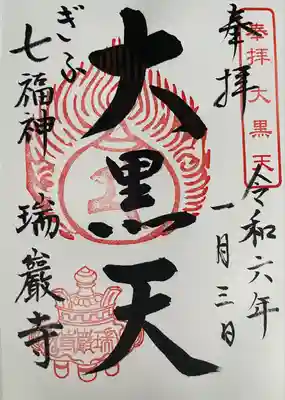 奉拝 大黒天
奉拝
令和六年
一月三日
大黒天
ぎふ
七福神 瑞巖寺